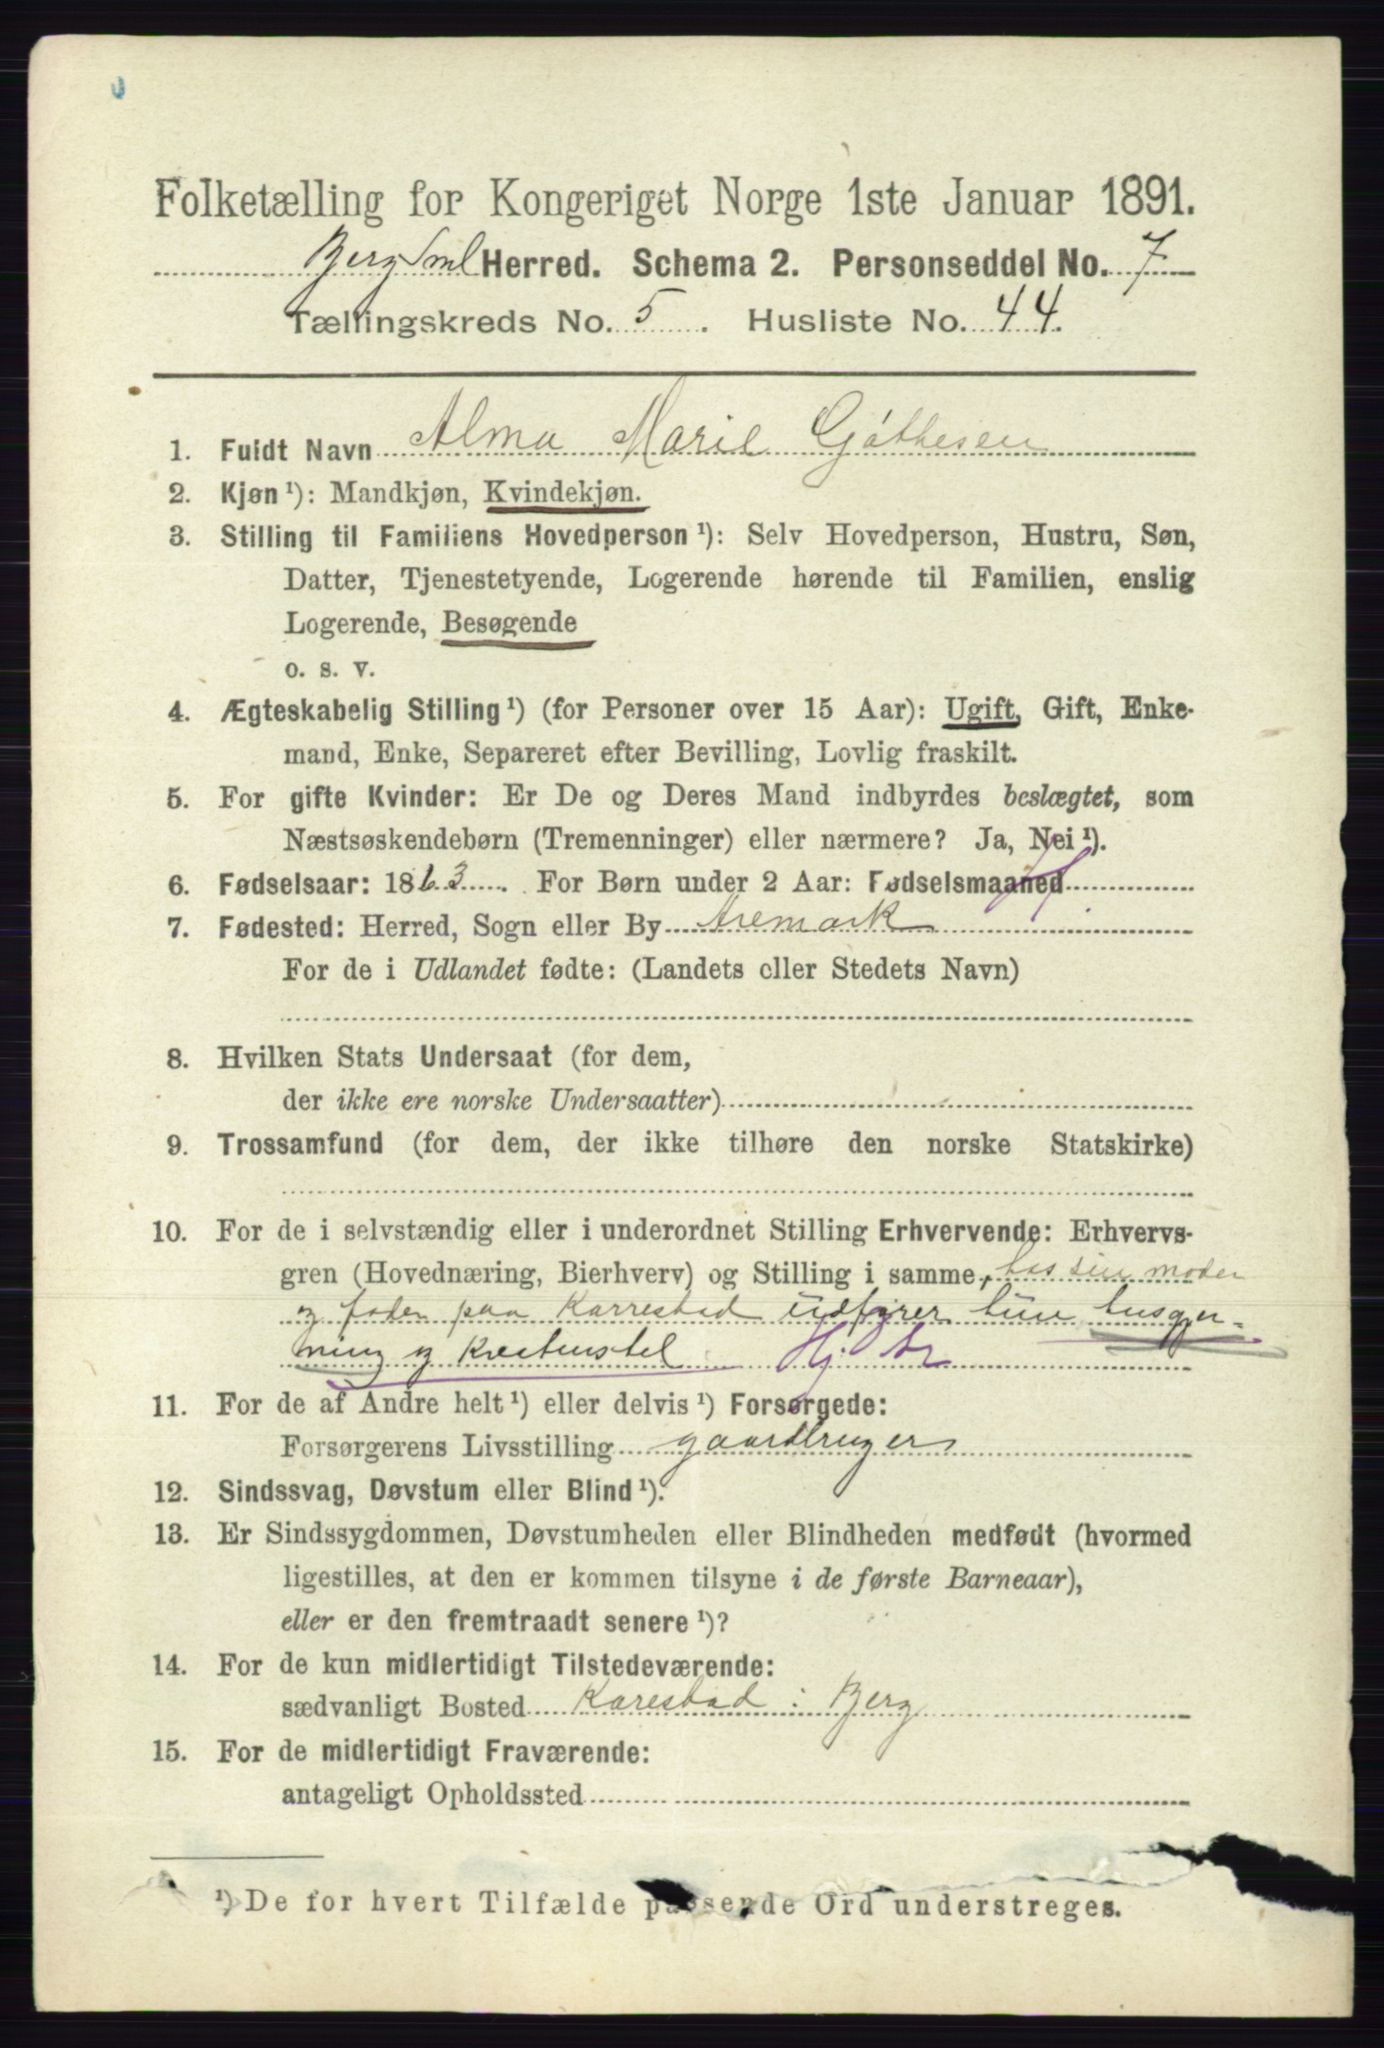 Folketælling for Kongeriget Norge 1ste Januar 1891.
Berg Sml Herred. Schema 2. Personseddel No. 7
Tællingskreds No. 5. Husliste No. 44.
1. Fuldt Navn Alma Marie Gøthesen
2. Kjøn ¹): Mandkjøn, Kvindekjøn.
3. Stilling til Familiens Hovedperson ¹): Selv Hovedperson, Hustru, Søn,
Datter, Tjenestetyende, Logerende hørende til Familien, enslig
Logerende, Besøgende
o. s. v.
4. Ægteskabelig Stilling ¹) (for Personer over 15 Aar): Ugift, Gift, Enke-
mand, Enke, Separeret efter Bevilling, Lovlig fraskilt.
5. For gifte Kvinder: Er De og Deres Mand indbyrdes beslægtet, som
Næstsøskendebørn (Tremenninger) eller nærmere? Ja, Nei ¹).
6. Fødselsaar: 1863. For Børn under 2 Aar: Fødselsmaaned
7. Fødested: Herred, Sogn eller By Aremark
For de i Udlandet fødte: (Landets eller Stedets Navn)
8. Hvilken Stats Undersaat (for dem,
der ikke ere norske Undersaatter)
9. Trossamfund (for dem, der ikke tilhøre den norske Statskirke)
10. For de i selvstændig eller i underordnet Stilling Erhvervende: Erhvervs-
gren (Hovednæring, Bierhverv) og Stilling i samme, hos sin moder
og fader paa Karrestad udfører hun husgjer-
ning og Kreaturstel Hj.
11. For de af Andre helt ¹) eller delvis ¹) Forsørgede:
Forsørgerens Livsstilling gaardbruger
12. Sindssvag, Døvstum eller Blind ¹).
13. Er Sindssygdommen, Døvstumheden eller Blindheden medfødt (hvormed
ligestilles, at den er kommen tilsyne i de første Barneaar),
eller er den fremtraadt senere ¹)?
14. For de kun midlertidigt Tilstedeværende:
sædvanligt Bosted Karestad i Berg
15. For de midlertidigt Fraværende:
antageligt Opholdssted
¹) De for hvert Tilfælde passende Ord understreges.